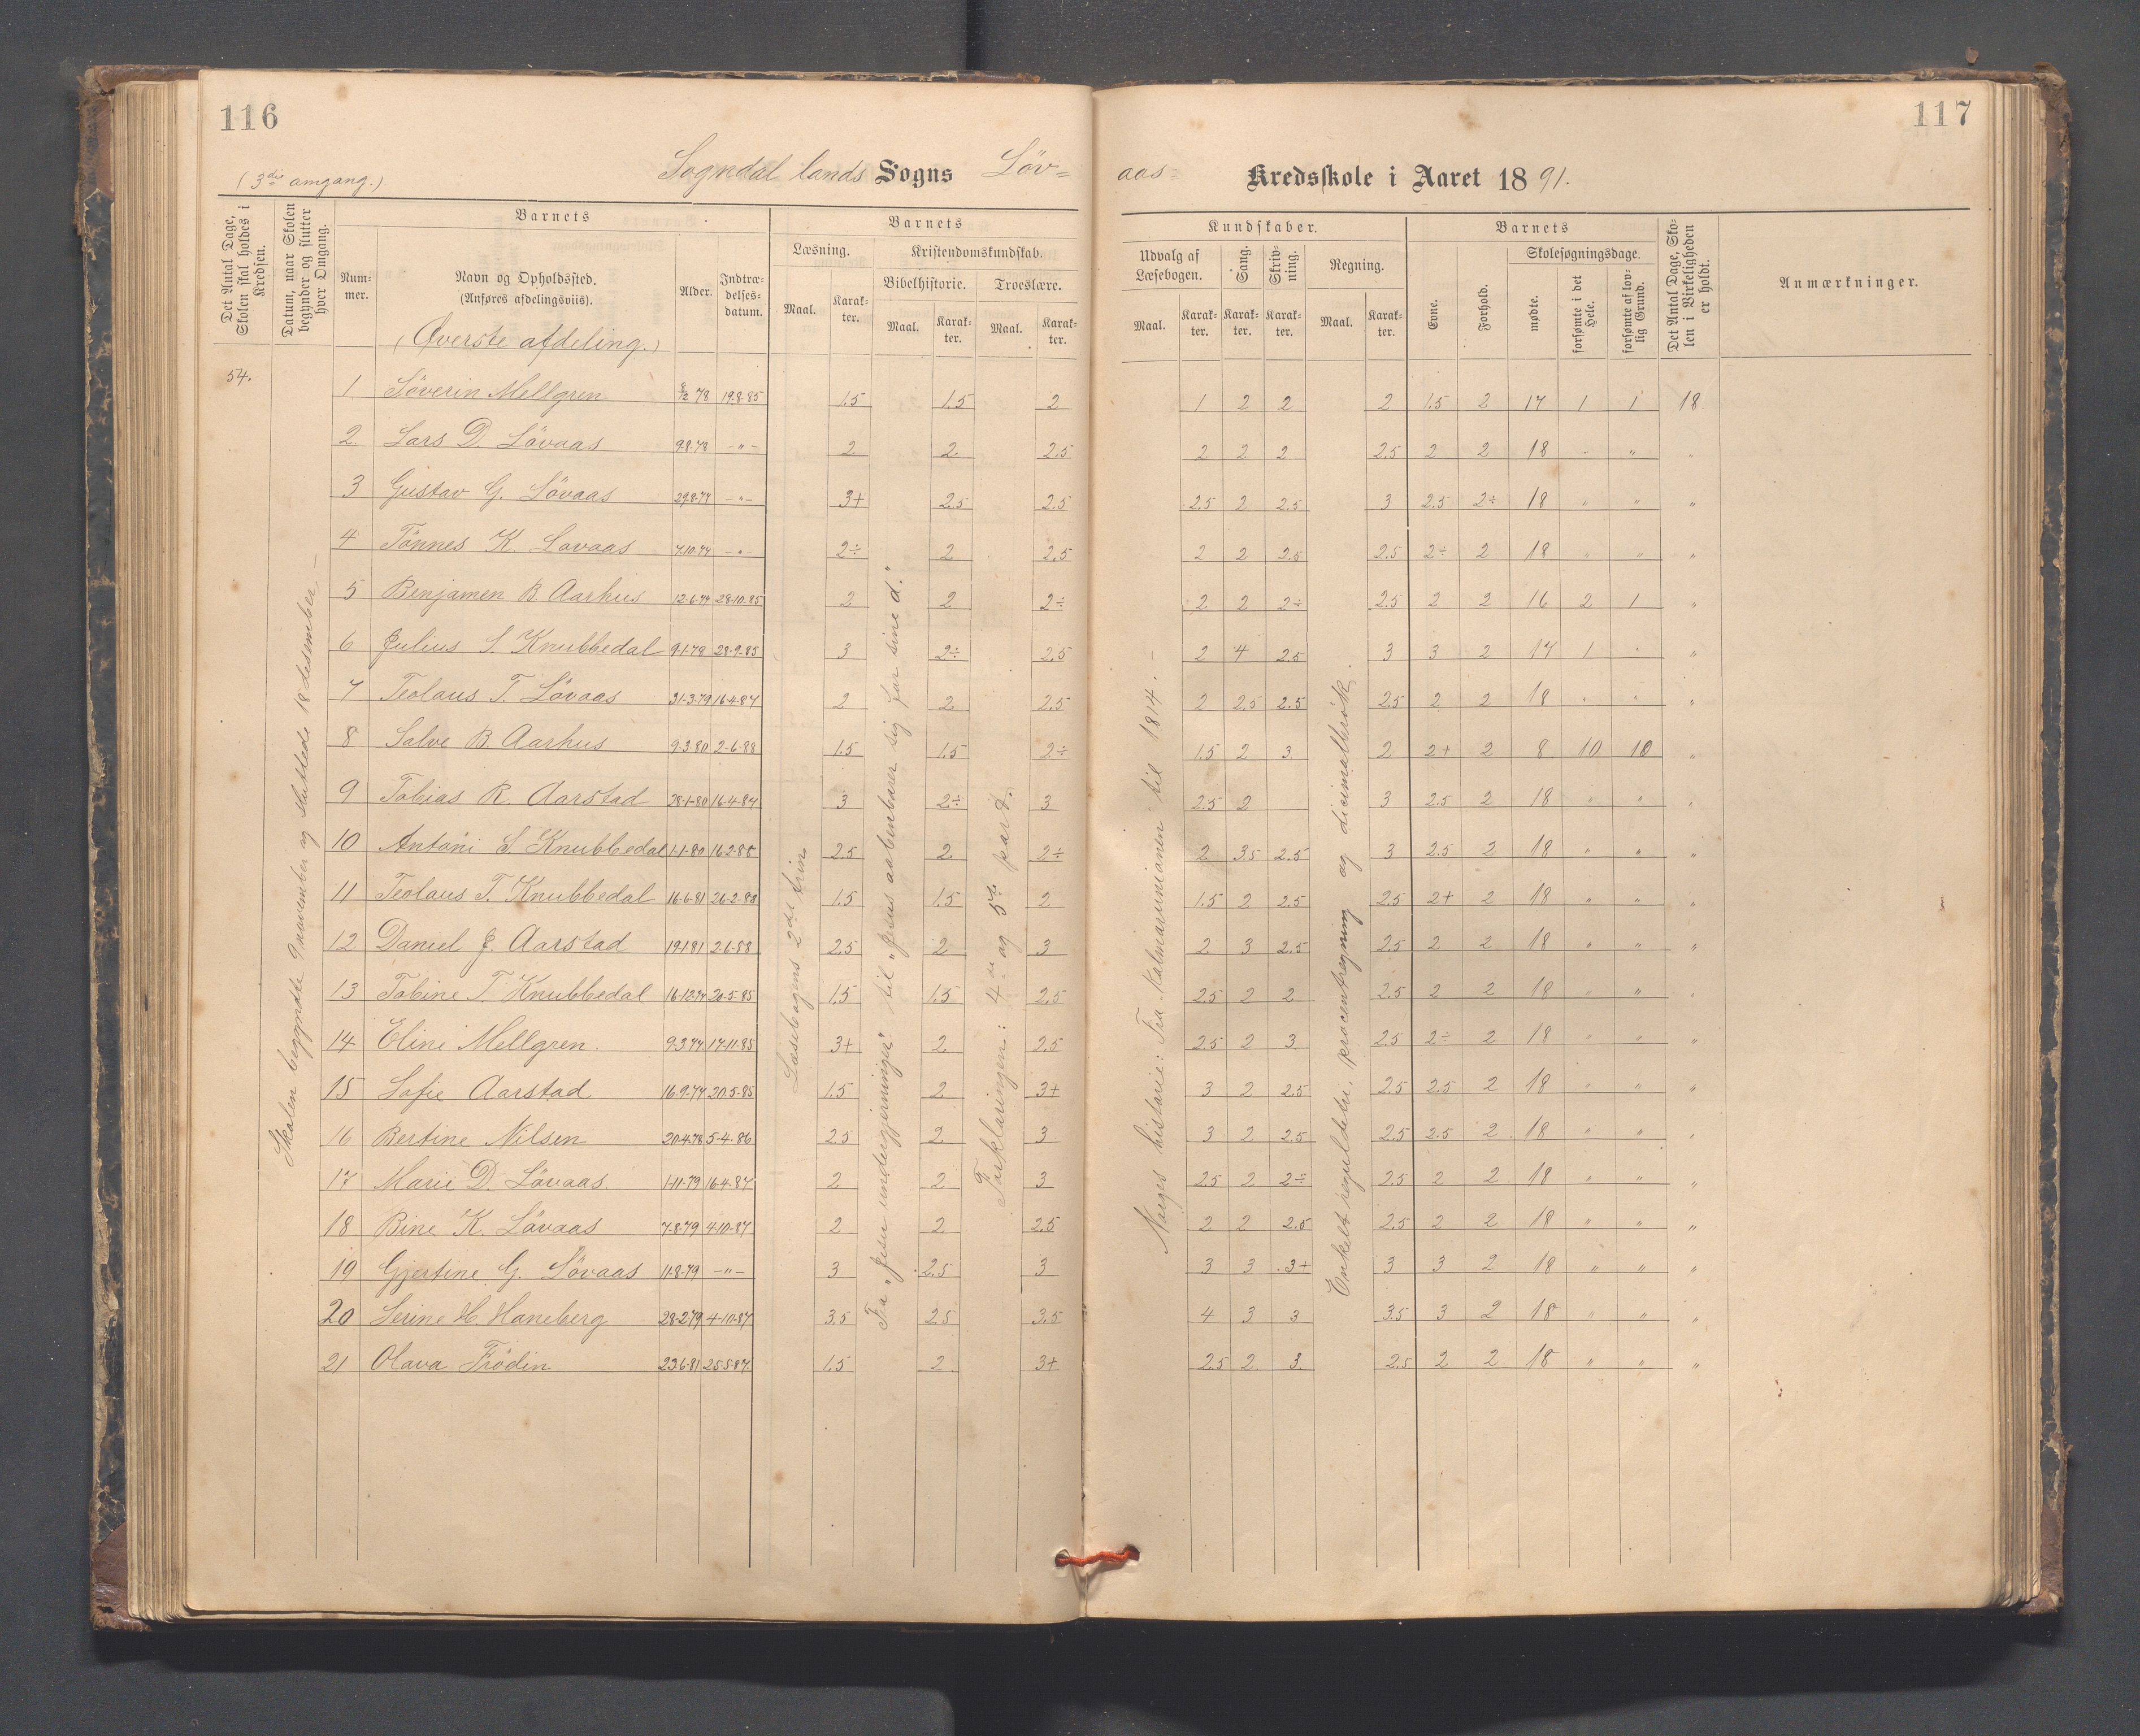 116
117
(3die omgang.)
Sogndal lands Sogns Löv=
aas= Kredsskole i Aaret 1891.
Det Antal Dage, Skolen skal holdes i Kredsen.
Datum, naar Skolen begynder og slutter hver Omgang.
Barnets
Num-mer.
Navn og Opholdssted.
(Anføres afdelingsviis).
Alder.
Indtræ-delses-datum.
Barnets
Læsning.
Kristendomskundskab.
Bibelhistorie.
Troeslære.
Maal.
Karak-ter.
Maal.
Karak-ter.
Maal.
Karak-ter.
Kundskaber.
Udvalg af Læsebogen.
Sang.
Skriv-ning.
Regning.
Maal.
Karak-ter.
Karak-ter.
Karak-ter.
Maal.
Karak-ter.
Barnets
Evne.
Forhold.
Skolesøgningsdage.
mødte.
forsømte i det Hele.
forsømte af lov-lig Grund.
Det Antal Dage, Sko-len i Virkeligheden er holdt.
Anmærkninger.
(Øverste afdeling.)
54.
1 Söverin Mellgren 8/12 78 19.8.85 1.5 1.5 2 1 2 2 2 1.5 2 17 1 1 18
2. Lars D. Lövaas 9.8.78 -"- 2 2 2.5 2 2 2 2.5 2 2 18 " " "
3 Gustav G. Lövaas 29.8.77 -"- 3+ 2.5 2.5 2.5 2 2.5 3 2.5 2÷ 18 " " "
4 Tönnes K. Lovaas 7.10.77 -"- 2÷ 2 2.5 2 2 2.5 2.5 2÷ 2 18 " " "
5 Benjamen B. Aarhus 12.6.77 28.10.85 2 2 2÷ 2 2 2÷ 2.5 2 2 16 2 1 "
6 Julius S. Knubbedal 9.1.79 28.9.85 3 2÷ 2.5 2 4 2.5 3 3 2 17 1 " "
7 Teolaus T. Lövaas 31.3.79 16.4.87 2 2 2.5 2 2.5 2.5 2.5 2 2 18 " " "
8 Salve B. Aarhus 9.3.80 2-6-88 1.5 1.5 2÷ 1.5 2 3 2 2+ 2 8 10 10 "
9 Tobias R. Aarstad 28-1-80 16-4-87 3 2÷ 3 2.5 2 3 2.5 2 18 " " "
10 Antoni S. Knubbedal 1-1-80 16.2.88 2.5 2 2÷ 2 3.5 2.5 3 2.5 2 18 " " "
11 Teolaus T. Knubbedal 16-6-81 26-2-89 1.5 1.5 2 1.5 2 2.5 2.5 2+ 2 18 " " "
12 Daniel J. Aarstad 19.1.81 2.6.88 2.5 2 3 2 3 2.5 2.5 2 2 18 " " "
13 Tobine T. Knubbedal 16-12.77 20-5-85 1.5 1.5 2.5 2.5 2 2 2.5 2 2 18 " " "
14 Eline Mellgren. 9-3.77 17-11-85 3+ 2 2.5 2.5 2 3 2.5 2÷ 2 18 " " "
15 Sofie Aarstad 16-9-77 20.5-85 1.5 2 3+ 3 2 2.5 2.5 2.5 2 18 " " "
16 Bertine Nilsen 20.4.78 5-4-86 2.5 2 3 3 2 2.5 2.5 2.5 2 18 " " "
17 Marie D. Lövaas. 1-11-79 16-4-87 2 2 3 2.5 2 2÷ 2.5 2 2 18 " " "
18 Bine K. Lövaas 7-8-79 4-10-87 2 2 2.5 2 2 2.5 2.5 2 2 18 " " "
19 Gjertine G. Lövaas 11-8-79 -"- 3 2.5 3 3 3 3+ 3 3 2 18 " " "
20 Serine H. Haneberg 28-2-79 4-10-87 3.5 2.5 3.5 4 3 3 3.5 3 2 18 " " "
21 Olava Frödin 23.6-81 25-5-87 1.5 2 3+ 2.5 2 3 2.5 2 2 18 " " "
Skolen begyndte 9 november og sluttede 18 desember —
Læsebogens 2det trin
Fra "Jesu undergjerninger" til "Jesus aabenbarer sig for sine d."
Forklaringen: 4de og 5te part.
Norges historie: Fra Kalmarunionen til 1814. —
Enkelt reguladetri, procentregning og decimalbrök.